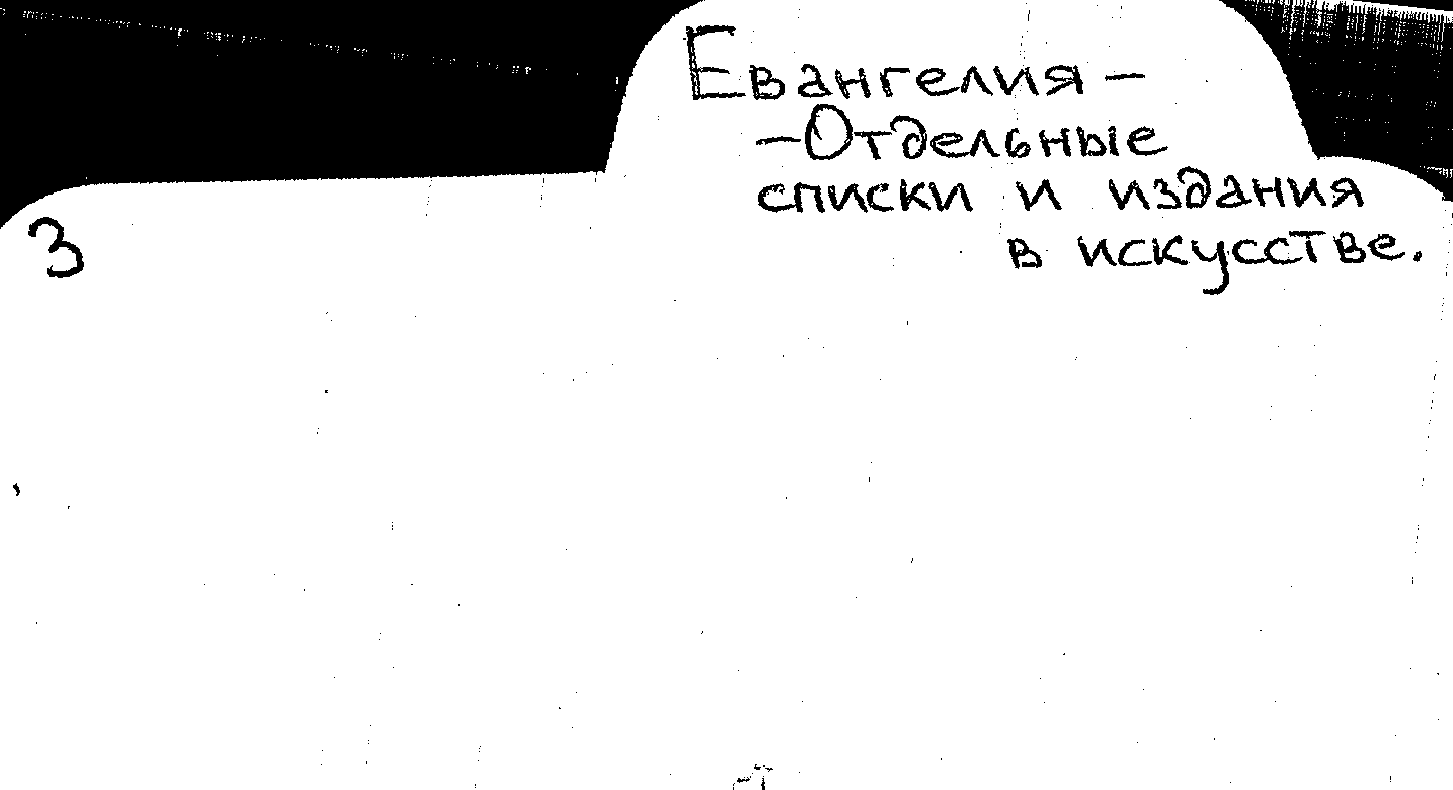 Евангелия –
– Отдельные
списки и издания
в искусстве.
3